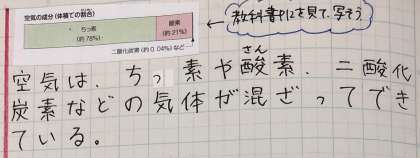 空気の成分(体積での割合)
ちっ素
(約78%)
酸素
(約21%)
二酸化炭素(約0.04%)など
←教科書P12を見て、写そう
空気は、ちっ素や酸素、二酸化
さん
炭素などの気体が混ざってでき
ている。